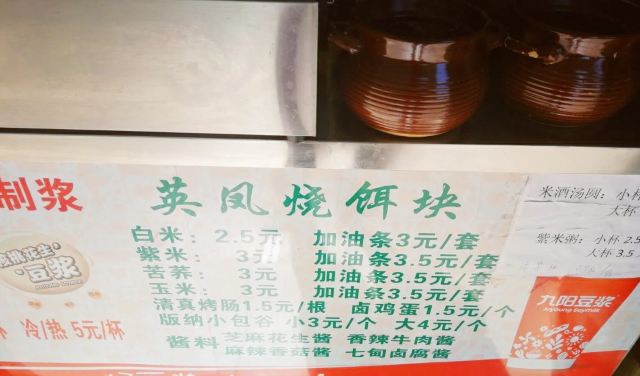 制浆
豆浆
冷/热 5元/杯
英凤烧饵块
白米： 2.5元 加油条3元/套
紫米： 3元 加油条3.5元/套
苦荞： 3元 加油条3.5元/套
玉米： 3元 加油条3.5元/套
清真烤肠1.5元/根 卤鸡蛋1.5元/个
版纳小包谷 小3元/个 大4元/个
酱料 芝麻花生酱 香辣牛肉酱
麻辣香菇酱 七甸卤腐酱
米酒汤圆： 小杯
大杯
紫米粥： 小杯 2.5
大杯 3.5
九阳豆浆
Joyoung Soymilk